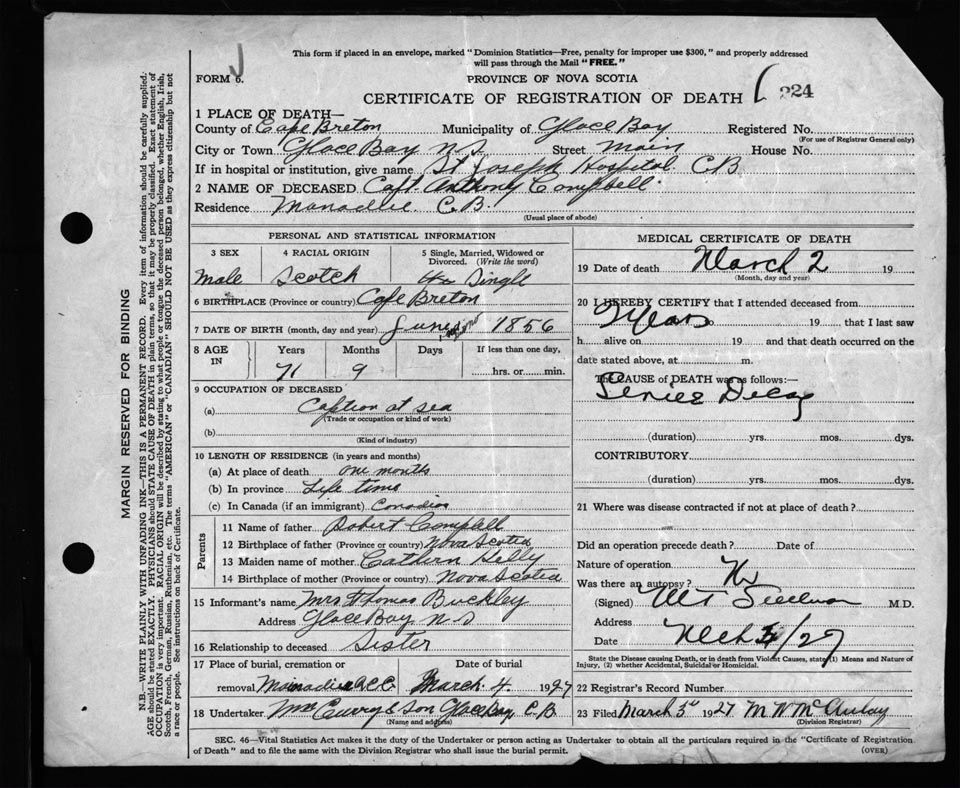 This form if placed in an envelope, marked "Dominion Statistics—Free, penalty for improper use $300," and properly addressed
will pass through the Mail "FREE."
FORM 6.
PROVINCE OF NOVA SCOTIA
CERTIFICATE OF REGISTRATION OF DEATH 224
1 PLACE OF DEATH—
County of Cape Breton Municipality of Glace Bay Registered No.
(For use of Registrar General only)
City or Town Glace Bay N S Street Main House No.
If in hospital or institution, give name St Joseph Hospital C.B
2 NAME OF DECEASED Capt. Anthony Campbell
Residence Manadue C.B.
(Usual place of abode)
PERSONAL AND STATISTICAL INFORMATION
3 SEX 4 RACIAL ORIGIN 5 Single, Married, Widowed or Divorced. (Write the word)
male Scotch Single
6 BIRTHPLACE (Province or country) Cape Breton
7 DATE OF BIRTH (month, day and year) June 1856
8 AGE IN Years Months Days If less than one day,
71 9 hrs. or min.
9 OCCUPATION OF DECEASED
(a) Caption at sea
(Trade or occupation or kind of work)
(b)
(Kind of industry)
10 LENGTH OF RESIDENCE (in years and months)
(a) At place of death one month
(b) In province Life time
(c) In Canada (if an immigrant) Canadian
Parents
11 Name of father Robert Campbell
12 Birthplace of father (Province or country) Nova Scotia
13 Maiden name of mother Cathern Kelly
14 Birthplace of mother (Province or country) Nova Scotia
15 Informant's name Mrs Thomas Buckley
Address Glace Bay N S
16 Relationship to deceased Sister
17 Place of burial, cremation or Date of burial
removal March. 4 1927
18 Undertaker Wm Curry & Son Glace Bay, C.B
(Name and address)
MEDICAL CERTIFICATE OF DEATH
19 Date of death March 2 19
(Month, day and year)
20 I HEREBY CERTIFY that I attended deceased from
19 that I last saw
h alive on 19 and that death occurred on the
date stated above, at m.
The CAUSE of DEATH was as follows:—
Decay
(duration) yrs. mos. dys.
CONTRIBUTORY
(duration) yrs. mos. dys.
21 Where was disease contracted if not at place of death?
Did an operation precede death? Date of
Nature of operation
Was there an autopsy? No
(Signed) M.D.
Address
Date /27
State the Disease causing Death, or in death from Violent Causes, state (1) Means and Nature of
Injury, (2) whether Accidental, Suicidal or Homicidal.
22 Registrar's Record Number
23 Filed March 3d 1927 M W McAulay
(Division Registrar)
SEC. 46—Vital Statistics Act makes it the duty of the Undertaker or person acting as Undertaker to obtain all the particulars required in the "Certificate of Registration
of Death" and to file the same with the Division Registrar who shall issue the burial permit.
(OVER)
MARGIN RESERVED FOR BINDING
N.B.—WRITE PLAINLY WITH UNFADING INK—THIS IS A PERMANENT RECORD. Every item of information should be carefully supplied.
AGE should be stated EXACTLY. PHYSICIANS should STATE CAUSE OF DEATH in plain terms, so that it may be properly classified. Exact statement of
OCCUPATION is very important. RACIAL ORIGIN will be described by stating to what people or tongue the deceased person belonged, whether English, Irish,
Scotch, French, German, Russian, Ruthenian, etc. The terms "AMERICAN" or "CANADIAN" SHOULD NOT BE USED as they express citizenship but not
a race or people. See instructions on back of Certificate.